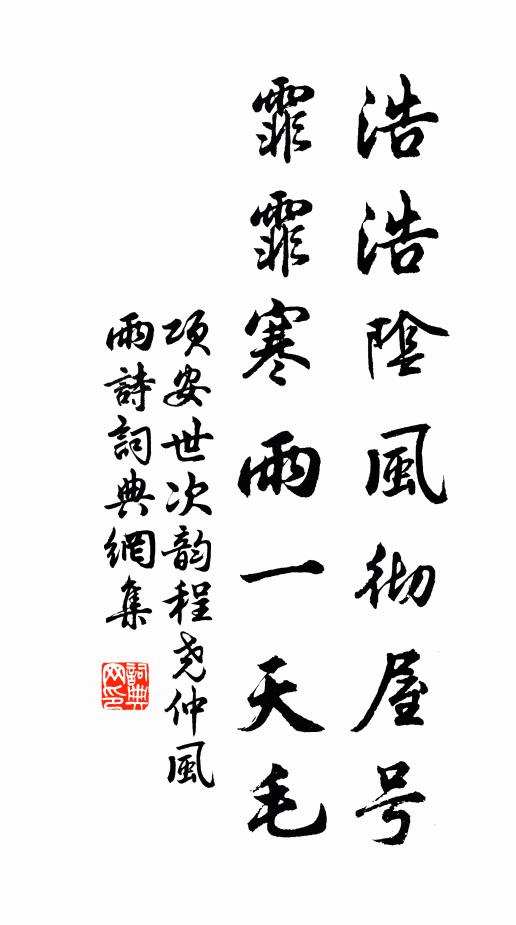 浩浩陰風彻屋号
霏霏寒雨一天毛
项安世次韵程尧仲風
雨詩詞典網集
詞典
网印